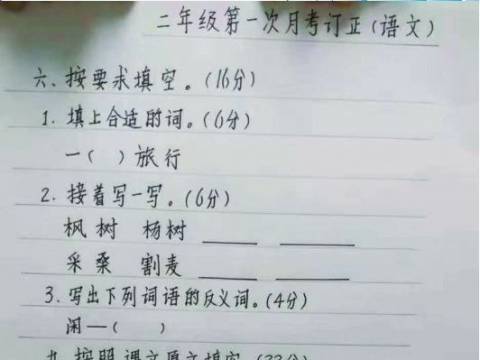 二年级第一次月考订正(语文)
六、按要求填空。(16分)
1. 填上合适的词。(6分)
一( )旅行
2. 接着写一写。(6分)
枫树 杨树 ____ ____
采桑 割麦 ____ ____
3. 写出下列词语的反义词。(4分)
闲—( )
九、按照课文原文填空。(22分)